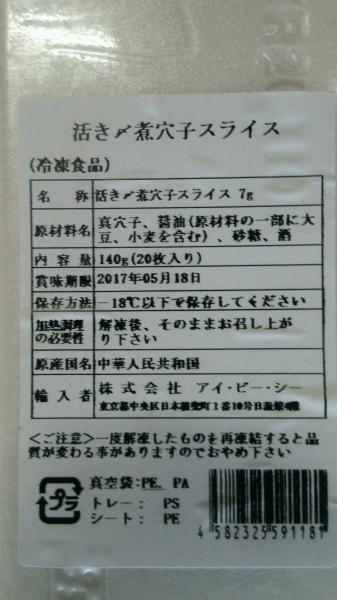 活き〆煮穴子スライス
(冷凍食品)
名 称 活き〆煮穴子スライス 7g
原材料名 真穴子、醤油(原材料の一部に大
豆、小麦を含む)、砂糖、酒
内 容 量 140g(20枚入り)
賞味期限 2017年05月18日
保存方法 −18℃以下で保存してください
加熱調理
の必要性 解凍後、そのままお召し上が
り下さい
原産国名 中華人民共和国
輸 入 者 株 式 会 社 アイ・ビー・シー
東京都中央区日本橋蛎殻町1番10号日
<ご注意>一度解凍したものを再凍結すると品
質が変わる事がありますのでおやめ下さい
プラ
真空袋:PE、PA
トレー: PS
シート: PE
4 582325 591181